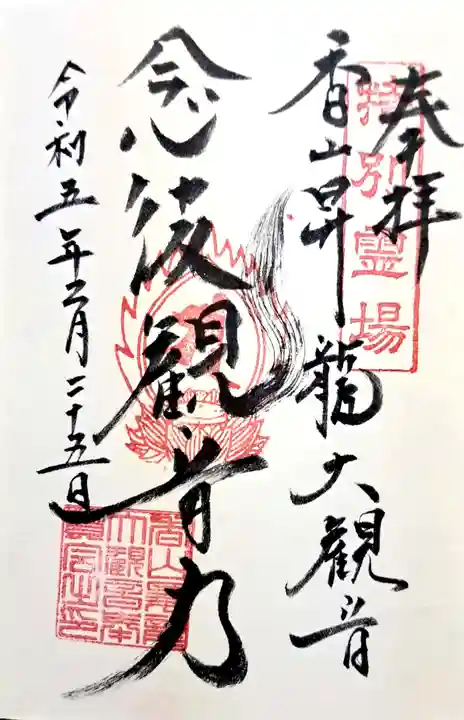 奉拝
特別霊場
香山昇龍大観音
念彼観音力
令和五年二月二十五日